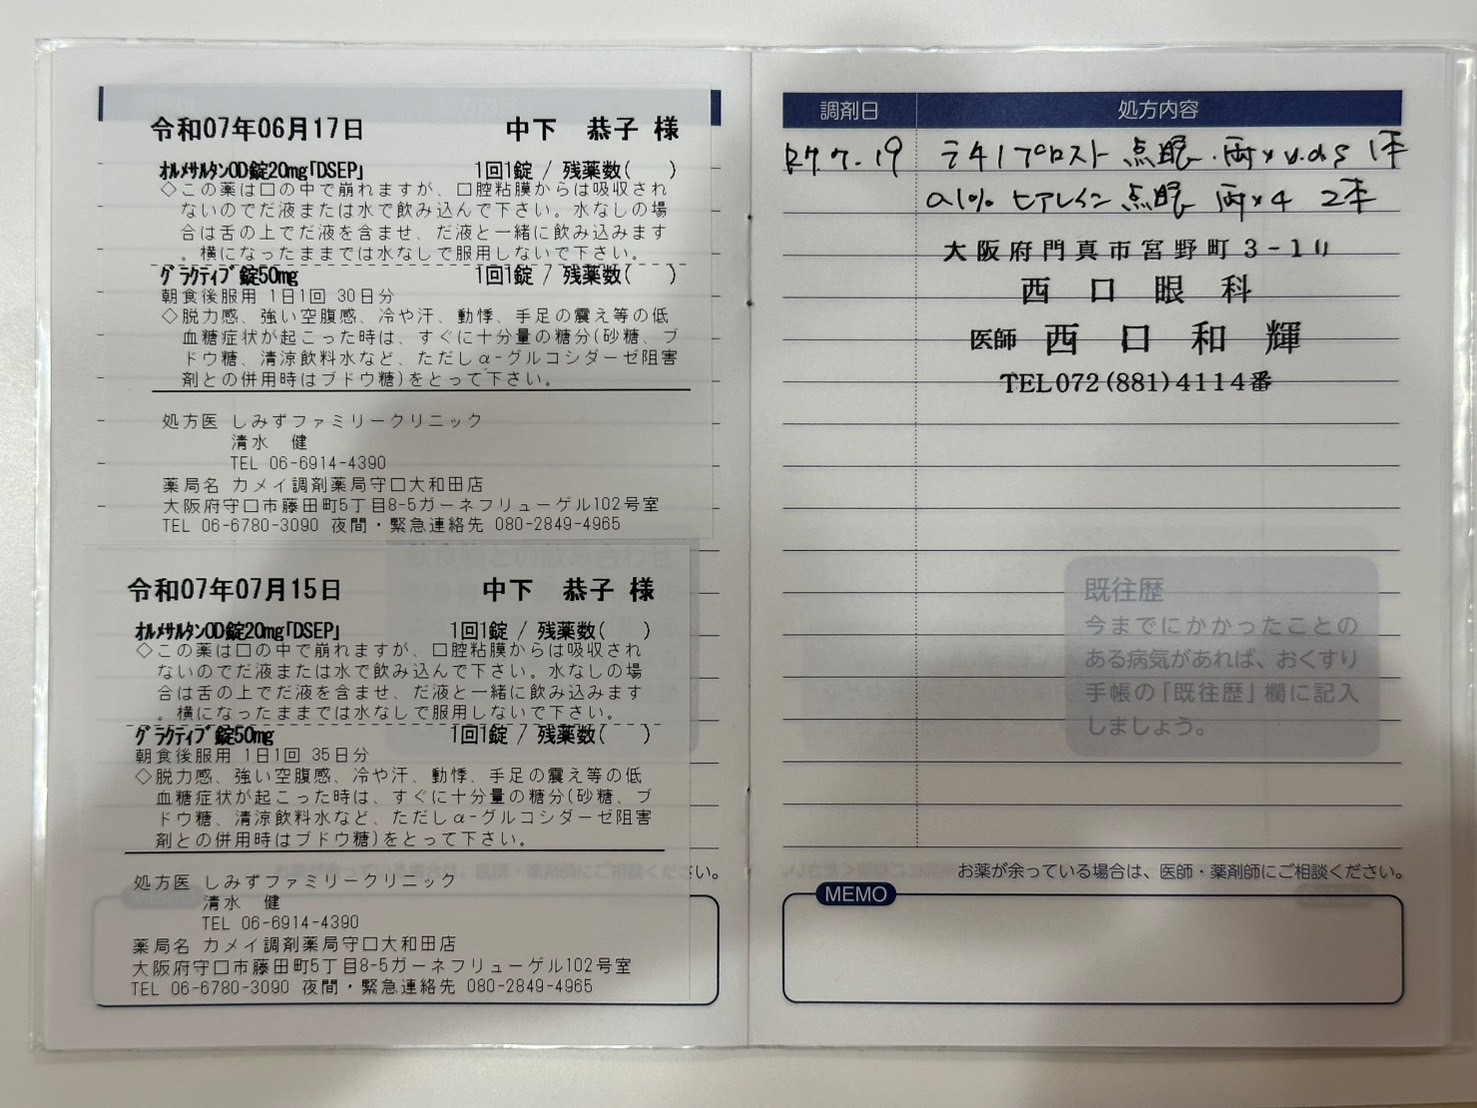 令和07年06月17日 中下 恭子 様
オルメサルタンOD錠20mg「DSEP」 1回1錠 / 残薬数( )
◇この薬は口の中で崩れますが、口腔粘膜からは吸収され
ないのでだ液または水で飲み込んで下さい。水なしの場
合は舌の上でだ液を含ませ、だ液と一緒に飲み込みます
。横になったままでは水なしで服用しないで下さい。
グラクティブ錠50mg 1回1錠 / 残薬数( )
朝食後服用 1日1回 30日分
◇脱力感、強い空腹感、冷や汗、動悸、手足の震え等の低
血糖症状が起こった時は、すぐに十分量の糖分(砂糖、ブ
ドウ糖、清涼飲料水など、ただしα-グルコシダーゼ阻害
剤との併用時はブドウ糖)をとって下さい。
処方医 しみずファミリークリニック
清水 健
TEL 06-6914-4390
薬局名 カメイ調剤薬局守口大和田店
大阪府守口市藤田町5丁目8-5ガーネフリューゲル102号室
TEL 06-6780-3090 夜間・緊急連絡先 080-2849-4965
令和07年07月15日 中下 恭子 様
オルメサルタンOD錠20mg「DSEP」 1回1錠 / 残薬数( )
◇この薬は口の中で崩れますが、口腔粘膜からは吸収され
ないのでだ液または水で飲み込んで下さい。水なしの場
合は舌の上でだ液を含ませ、だ液と一緒に飲み込みます
。横になったままでは水なしで服用しないで下さい。
グラクティブ錠50mg 1回1錠 / 残薬数( )
朝食後服用 1日1回 35日分
◇脱力感、強い空腹感、冷や汗、動悸、手足の震え等の低
血糖症状が起こった時は、すぐに十分量の糖分(砂糖、ブ
ドウ糖、清涼飲料水など、ただしα-グルコシダーゼ阻害
剤との併用時はブドウ糖)をとって下さい。
い。
処方医 しみずファミリークリニック
清水 健
TEL 06-6914-4390
薬局名 カメイ調剤薬局守口大和田店
大阪府守口市藤田町5丁目8-5ガーネフリューゲル102号室
TEL 06-6780-3090 夜間・緊急連絡先 080-2849-4965
調剤日 処方内容
R7.7.19 プロスト 点眼 両× v.d.S 1本
0.1% ヒアレイン 点眼 両×4 2本
大阪府門真市宮野町3-1
西口眼科
医師 西口和輝
TEL072(881)4114番
既往歴
今までにかかったことの
ある病気があれば、おくすり
手帳の「既往歴」欄に記入
しましょう。
お薬が余っている場合は、医師・薬剤師にご相談ください。
MEMO